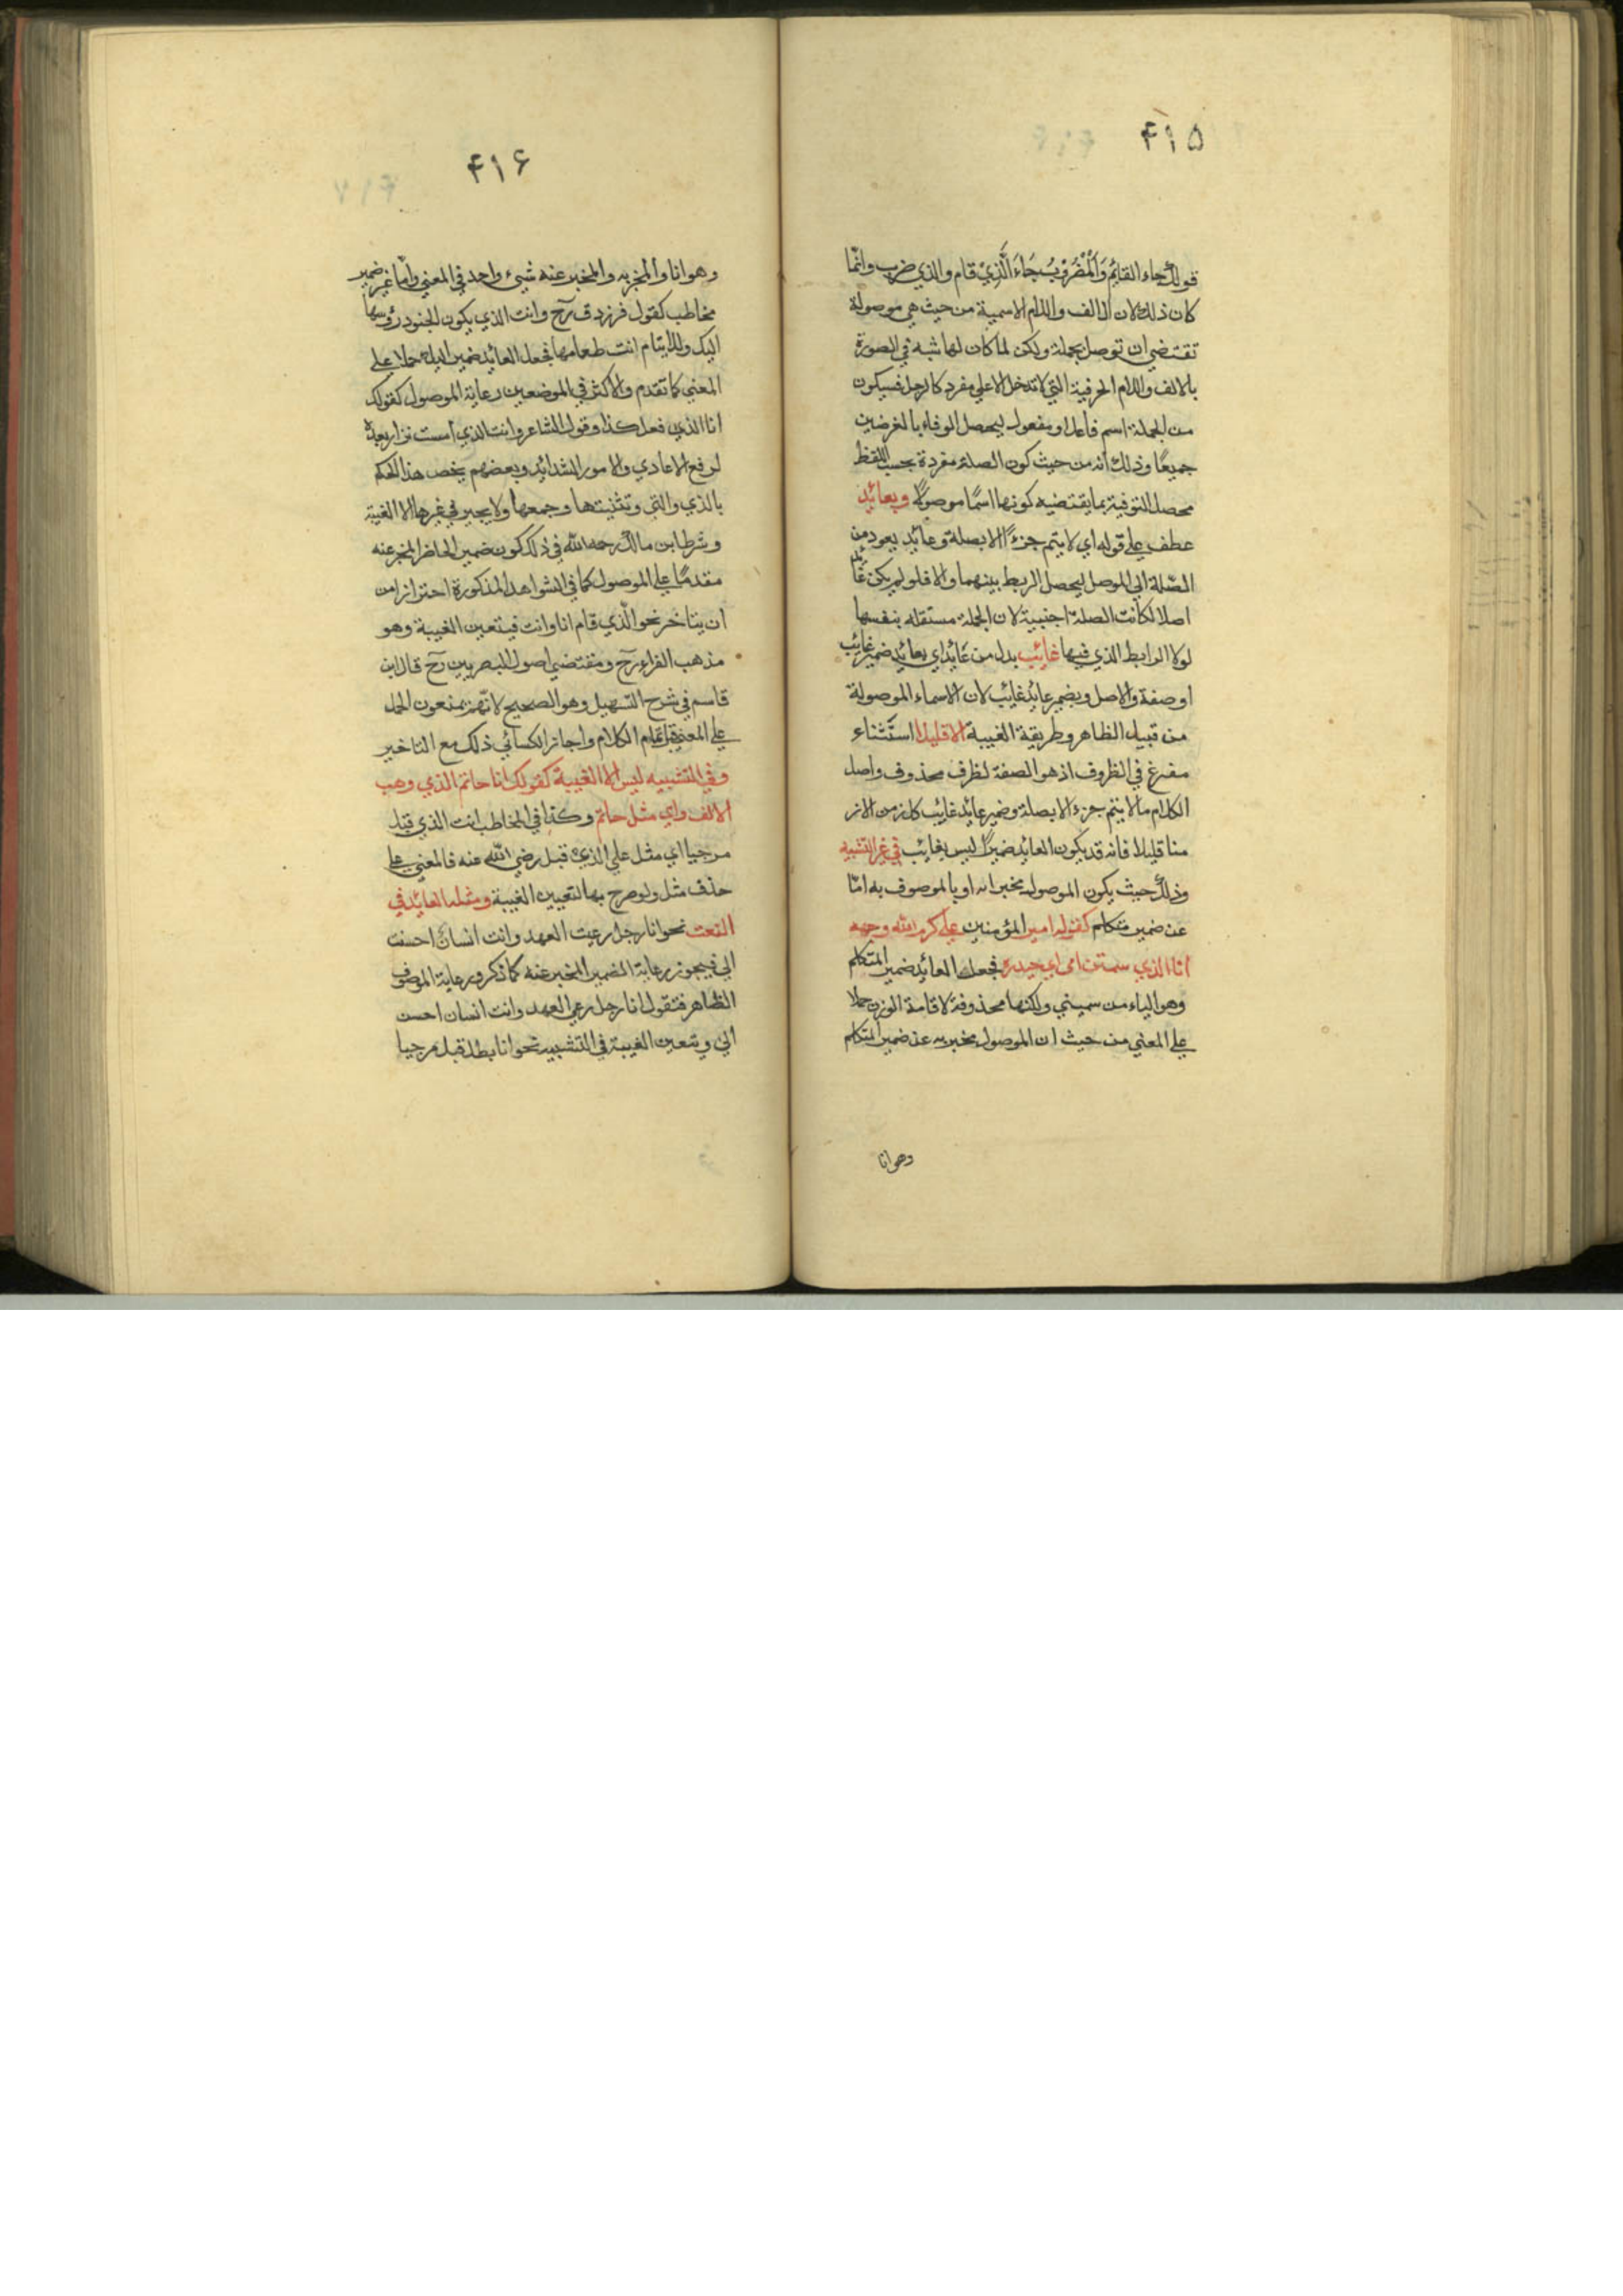 ۴۱۵
قولك جاء القايم وَالْمَضْرُوبُ جَاءَ الَّذِيْ قام والذي ضرب وانما
كان ذلك لان الالف واللام الاسمية من حيث هي موصولة
تقتضي ان توصل بجملة ولكن لما كان لها شبه في الصورة
بالالف واللام الحرفية التي لا تدخل الا على مفرد كالرجل فسيكون
من الجملة اسم فاعل او مفعول ليحصل الوفاء بالغرضين
جميعًا وذلك انه من حيث كون الصلة مفردة بحسب اللفظ
محصل التوفية بما يقتضيه كونها اسمًا موصولًا وبعائد
عطف على قوله اي لا يتم جزءًا الا بصلة وعائد يعود من
الصّلة الي الموصل ليحصل الربط بينهما والا فلو لم يكن عائد
اصلا لكانت الصلة اجنبية لان الجملة مستقله بنفسها
لولا الرابط الذي فيها غائب بدل من عائد اي بعائد ضمير غايب
او صفة والاصل وبضمير عائد غايب لان الاسماء الموصولة
من قبيل الظاهر وطريقة الغيبة الا قليلا استثناء
مفرغ في الظروف اذ هو الصفة لظرف محذوف واصل
الكلام ما لا يتم جزء الا بصلة وضمير عائد غايب كل زمن الاز
منا قليلا فانه قد يكون العائد ضميرًا ليس بغايب في غير التشبيه
وذلك حيث يكون الموصول مخبرا به او بالموصوف به امّا
عن ضمير متكلم كقول امير المؤمنين علي كرم الله وجهه
انا الذي سمتن امي حيدره فجعل العائد ضمير المتكلم
وهو الياء من سميني ولكنها محذوفة لاقامة الوزن حملا
علي المعني من حيث ان الموصول مخبر به عن ضمير المتكلم
وهو انا
۴۱۶
وهو انا والمخبر به والمخبر عنه شيئ واحد في المعني وامّا عن ضمير
مخاطب كقول فرزدق رح وانت الذي يكون الجنود رؤسها
اليك وللأيتام انت طعامها فجعل العائد ضمير الياء حملا علي
المعني كما تقدم والاكثر في الموضعين رعاية الموصول كقولك
انا الذي فعل كذا وقول الشاعر وانت الذي امست نزار بعده
لرفع الاعادي والامور الشدائد وبعضهم يخص هذا الحكم
بالذي والتي وتثنيتها وجمعها ولا يجيز في غيرها الا الغيبة
وشرط ابن مالك رحمه الله في ذلك كون ضمير الحاضر المخبر عنه
مقدمًا علي الموصول كما في الشواهد المذكورة احترازا من
ان يتاخر نحو الّذي قام انا وانت فيتعين الغيبة وهو
مذهب الفراء رح ومقتضي اصول البصريين رح قال ابن
قاسم في شرح التسهيل وهو الصحيح لانّهم يمنعون الحمل
علي المعني قبل تمام الكلام واجاز الكسائي ذلك مع التاخير
وفي التشبيه ليس الا الغيبة كقولك انا حاتم الذي وهب
الالف واي مثل حاتم وكذا في المخاطب انت الذي قتل
مرحبا اي مثل علي الذي قبل رضي الله عنه فالمعني علي
حذف مثل ولو صرح بها لتعيين الغيبة ومثله العائد في
النعت نحو انا رجل رعيت العهد وانت انسان احسنت
الي فيجوز رعاية الضمير المخبر عنه كما ذكر ورعاية الموصوف
الظاهر فتقول انا رجل رعي العهد وانت انسان احسن
الي وتتعين الغيبة في التشبيه نحو انا بطل قبل مرحبا